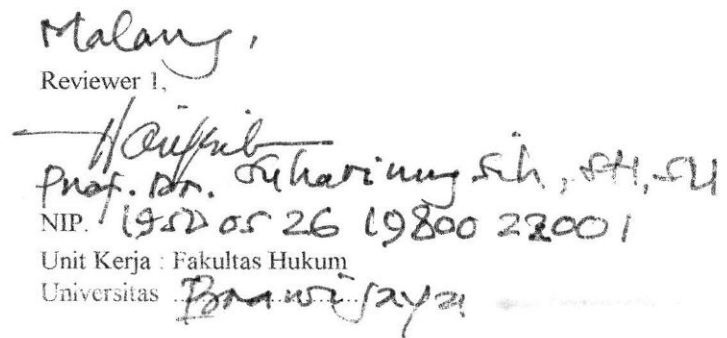 Malang,
Reviewer 1,
Prof. Dr. Suhariningsih, SH, SU
NIP. 19500526 19800 22001
Unit Kerja : Fakultas Hukum
Universitas Brawijaya